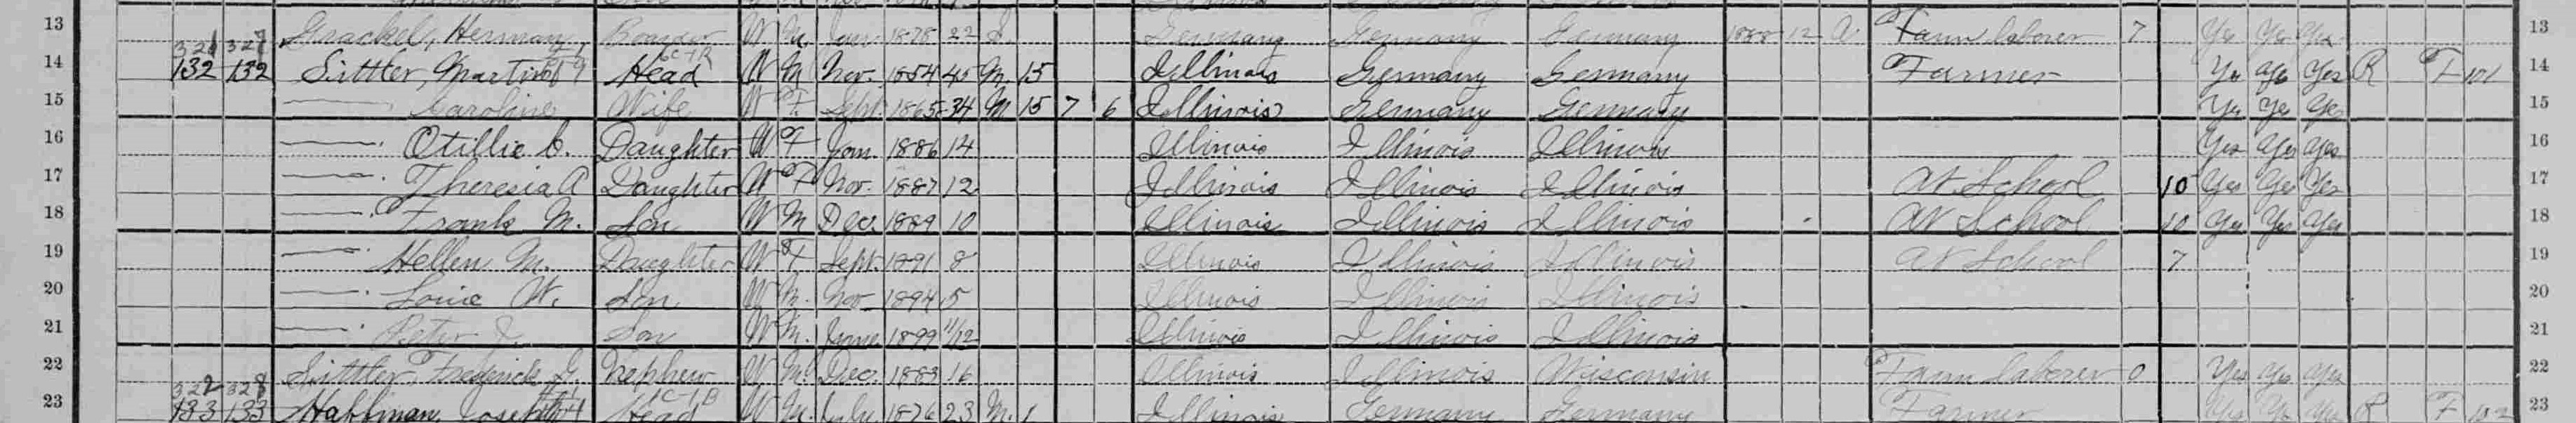 13 Grackel, Herman Boarder W M Jan 1878 22 S Germany Germany Germany 1888 12 A Farm laborer 7 Yes Yes Yes 13
321 327
14 132 132 Sittler, Martin Head W M Nov. 1854 45 M 15 Illinois Germany Germany Farmer Yes Yes Yes R F 101 14
15 — Caroline Wife W F Sept. 1865 34 M 15 7 6 Illinois Germany Germany Yes Yes Yes 15
16 — Otillie C. Daughter W F Jan. 1886 14 Illinois Illinois Illinois Yes Yes Yes 16
17 — Theresia A Daughter W F Nov. 1887 12 Illinois Illinois Illinois At School 10 Yes Yes Yes 17
18 — Frank M. Son W M Dec. 1889 10 Illinois Illinois Illinois At School 10 Yes Yes Yes 18
19 — Hellen M. Daughter W F Sept. 1891 8 Illinois Illinois Illinois At School 7 19
20 — Louie W. Son W M. Nov 1894 5 Illinois Illinois Illinois 20
21 — Peter J. Son W M. June 1899 11/12 Illinois Illinois Illinois 21
22 Sittler, Frederick G. Nephew W M. Dec. 1883 16 Illinois Illinois Wisconsin Farm laborer 0 Yes Yes Yes 22
322 328
23 133 133 Haffman, Joseph Head W M. July 1876 23 M. 1 Illinois Germany Germany Farmer Yes Yes Yes R F 102 23